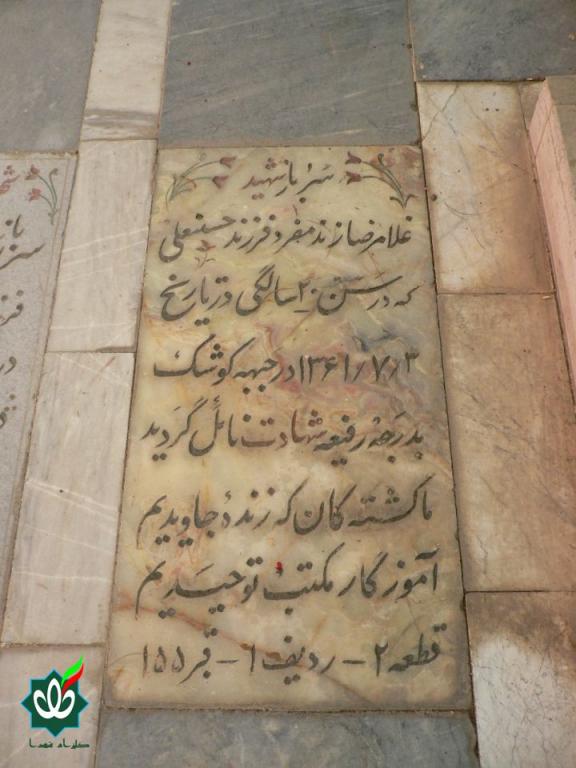 سرباز شهید
غلامرضا زند مفرد فرزند حسنعلی
که در سن ۲۰ سالگی در تاریخ
۱۳۶۱/۷/۳ در جبهه کوشک
بدرجهٔ رفیعه شهادت نائل گردید
ما کشته گان که زندهٔ جاویدیم
آموزگار مکتب توحیدیم
قطعه ۲ - ردیف ۱ - قبر ۱۵۵
گلزار شهدا